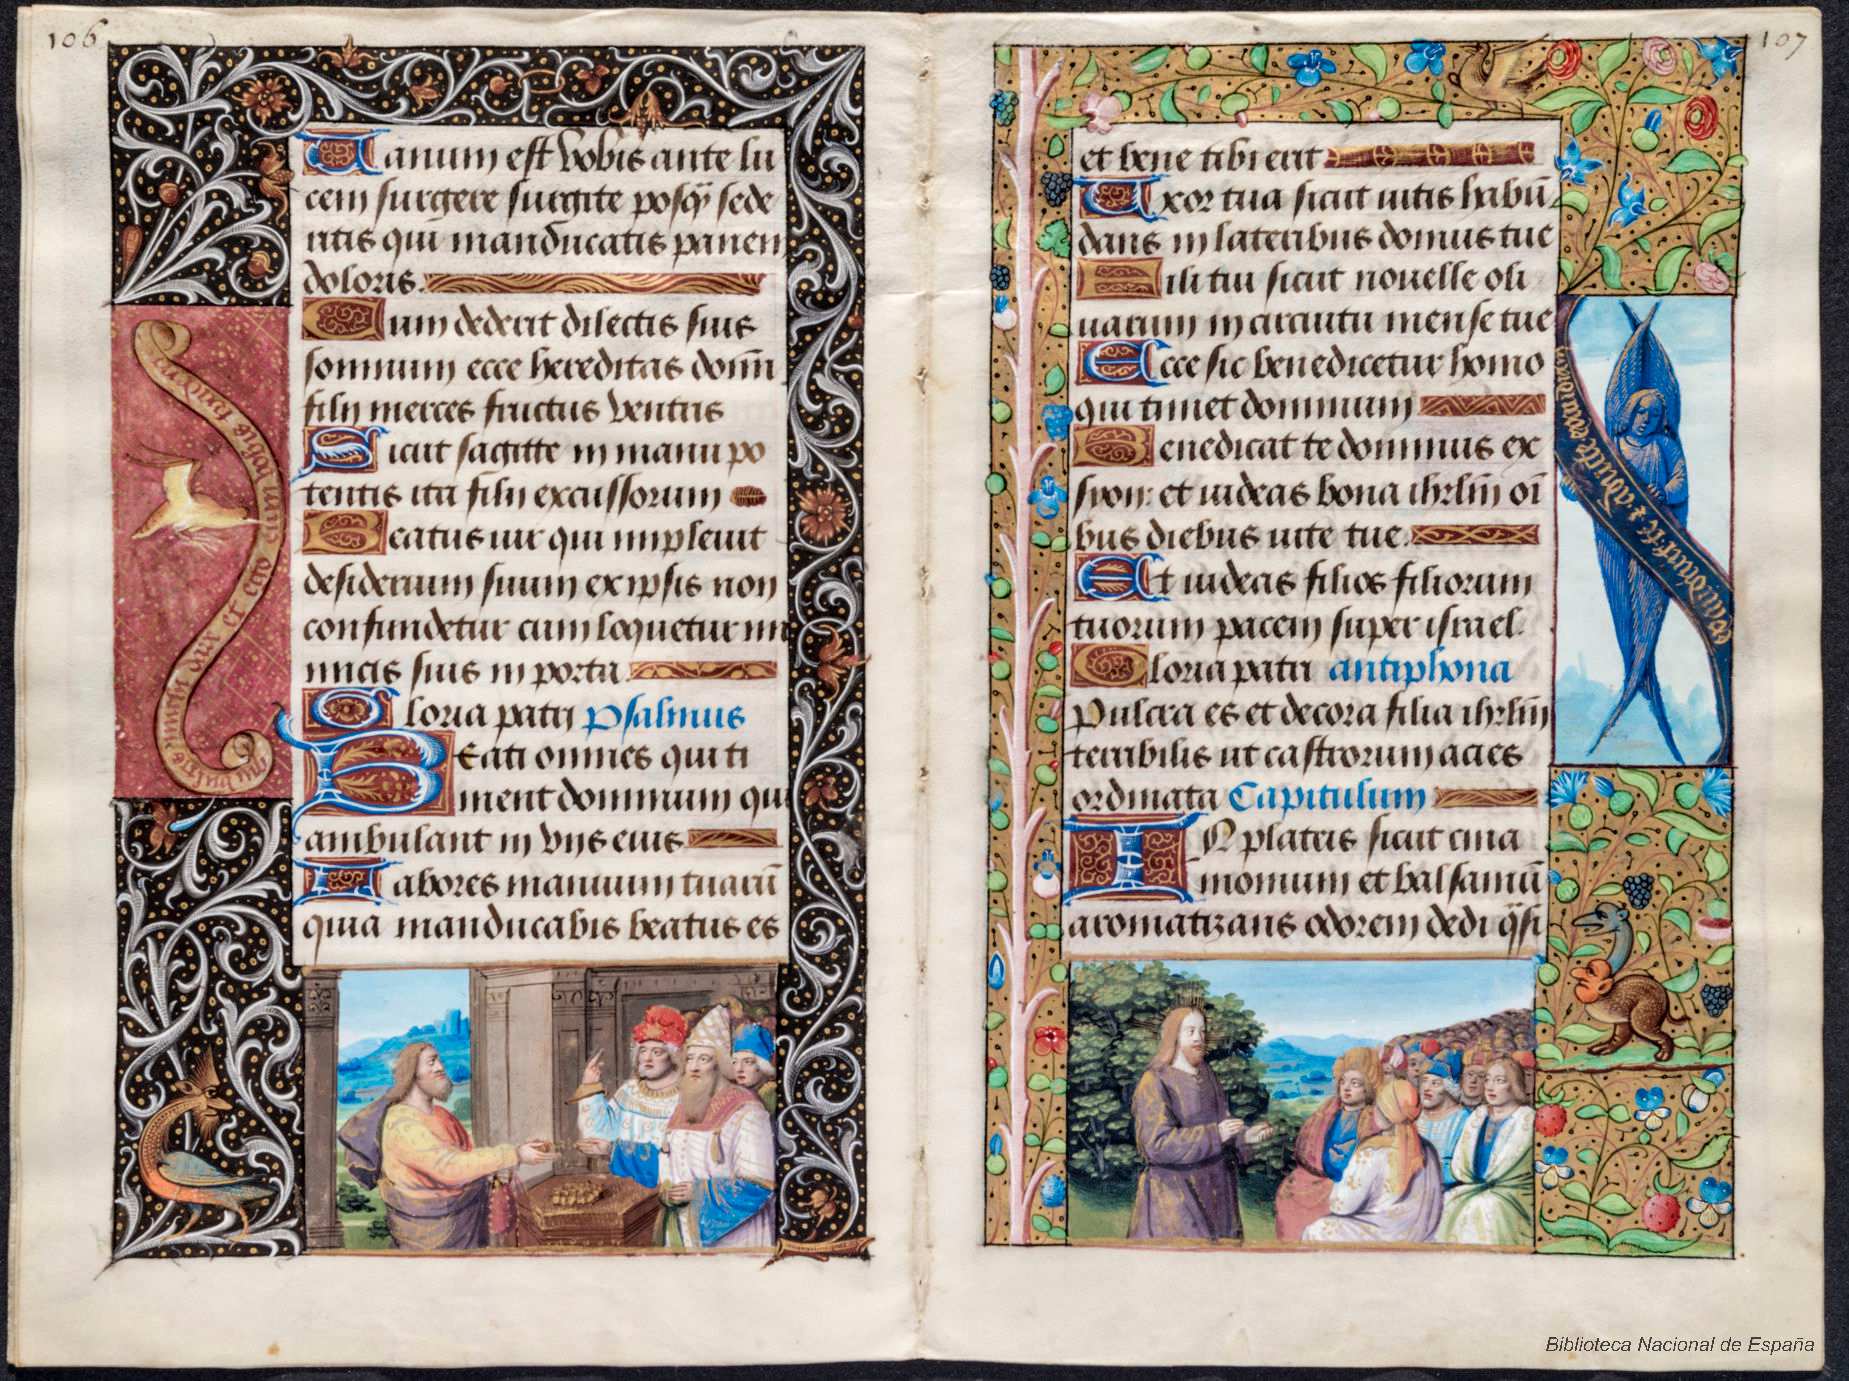 106
Vanum est vobis ante lu
cem surgere surgite posq̃ sede
ritis qui manducatis panem
doloris.
Cum dederit dilectis suis
somnum ecce hereditas domı̄
filij merces fructus ventris
Sicut sagitte in manu po
tentis ita filij excussorum
Beatus uir qui impleuit
desiderium suum ex ipsis non
confundetur cum loquetur ini
micis suis in porta.
Gloria patri Psalmus
Beati omnes qui ti
ment dominum qui
ambulant in vijs eius
Labores manuum tuarū
quia manducabis beatus es
107
et bene tibi erit
Uxor tua sicut uitis habū
dans in lateribus domus tue
Filii tui sicut nouelle oli
uarum in circuitu mense tue
Ecce sic benedicetur homo
qui timet dominum
Benedicat te dominus ex
syon: et uideas bona ihrlm̄ oı̄
bus diebus uite tue.
Et uideas filios filiorum
tuorum pacem super israel.
Gloria patri antiphona
Pulcra es et decora filia ihrlm̄
terribilis ut castrorum acies
ordinata Capitulum
IN plateis sicut cina
momum et balsamū
aromatizans odorem dedi q̄si
Biblioteca Nacional de España